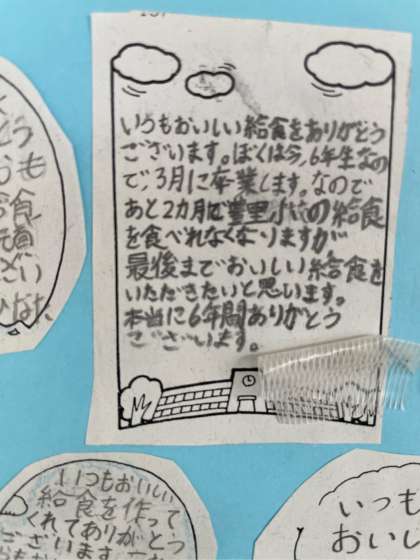 いつもおいしい給食をありがとう
ございます。ぼくは今,6年生なの
で,3月に卒業します。なので
あと2カ月で豊里小の給食
を食べれなくなりますが
最後までおいしい給食を
いただきたいと思います。
本当に6年間ありがとう
ございます。
いつもおいしい
給食を作って
くれてありがとう
ございます
いつも
おいし